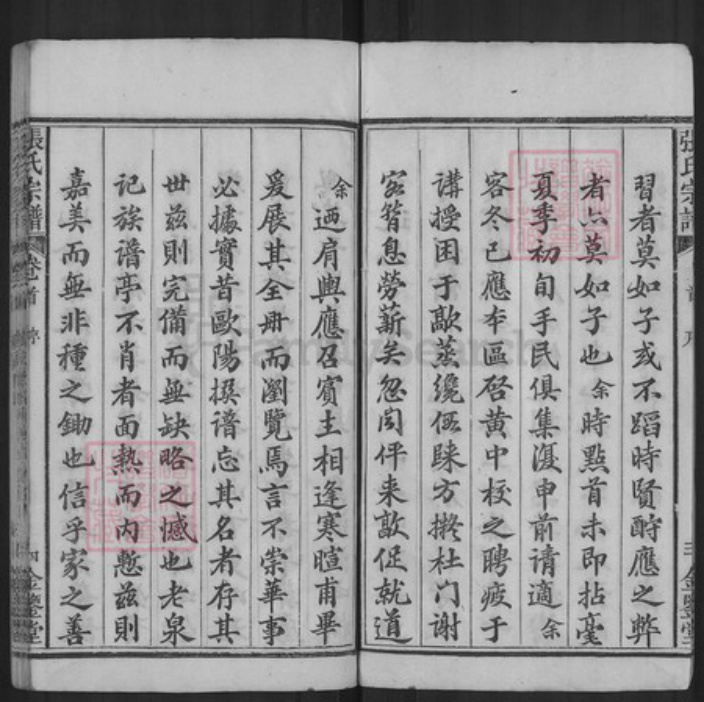 習者莫如子或不蹈時賢酧應之弊
者亦莫如子也余時點首未即拈毫
夏季初旬手民俱集復申前请適余
客冬已應本區啓黄中校之聘疲于
講授困于歊蒸纔伍睐方擬杜门谢
客暂息劳薪矣忽闰伻来敦促就道
余迺肩輿應召賓主相逢寒暄甫畢
爰展其全册而瀏覽焉言不崇華事
必據實昔歐陽撰谱忘其名者存其
世兹則完備而無缺略之憾也老泉
记族谱亭不肖者面熱而内慙兹則
嘉美而無非種之鋤也信乎家之善
張氏宗譜
卷首
序
四
金鑒堂
張氏宗譜
首
序
三
金鑒堂
FamilySearch